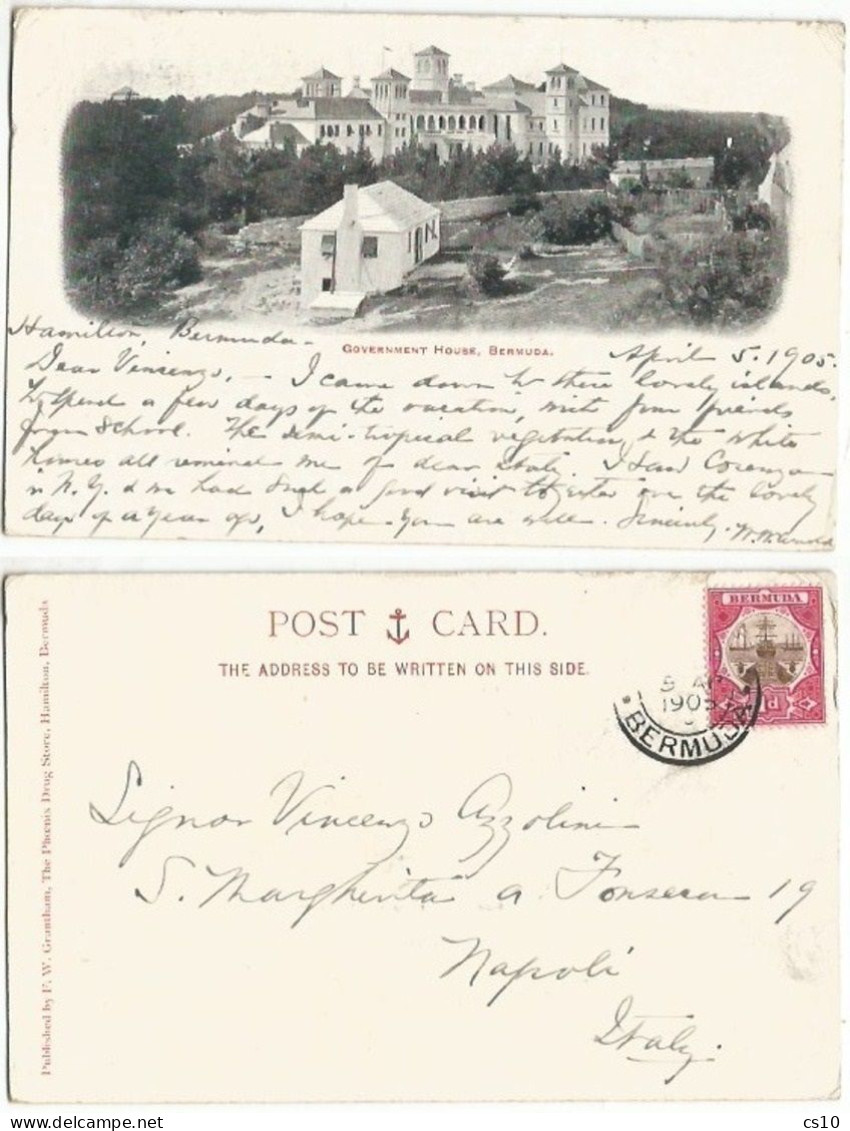 Hamilton, Bermuda.
GOVERNMENT HOUSE, BERMUDA.
April 5. 1905.
Dear Vincenzo, — I came down to these lovely islands,
to spend a few days of the vacation, with four friends
from school. The semi-tropical vegetation & the white
homes all remind me of dear Italy. I saw
in N.Y. & we had such a good visit together over the lovely
days of a year ago, I hope you are well. Sincerely.
POST CARD.
THE ADDRESS TO BE WRITTEN ON THIS SIDE.
Published by F. W. Grantham, The Phoenix Drug Store, Hamilton, Bermuda
BERMUDA
1905
BERMUDA
Signor Vincenzo Azzolini
S. Margherita a Fonseca 19
Napoli
Italy.
cs10